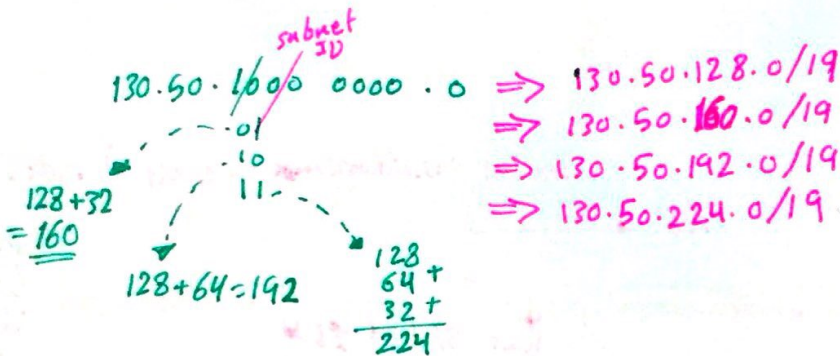 subnet
ID
130.50.1000 0000.0 => 130.50.128.0/19
01 => 130.50.160.0/19
10 => 130.50.192.0/19
11 => 130.50.224.0/19
128+32
=160
128+64=192
128
64 +
32 +
224